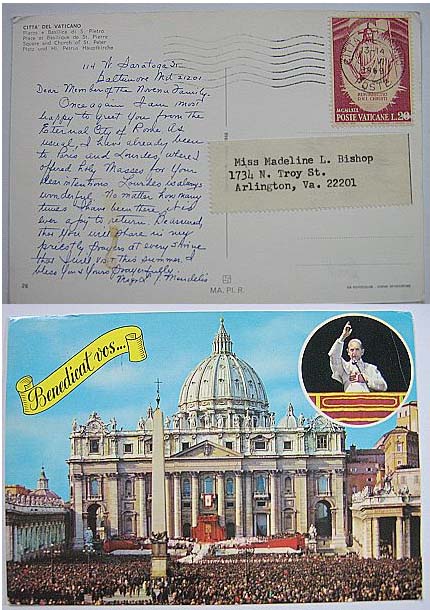 CITTA' DEL VATICANO
Piazza e Basilica di S. Pietro
Place et Basilique de St. Pierre
Square and Church of St. Peter
Platz und Hl. Petrus Hauptkirche
114 W Saratoga St.
Baltimore Md 21201
Dear Member of the Novena Family,
Once again I am most
happy to greet you from the
Eternal City of Rome. As
usual, I have already been
to Paris and Lourdes, where I
offered Holy Masses for your
dear intentions. Lourdes is always
wonderful. No matter how many
times I have been there, it is
ever a joy to return. Be assured,
that you will share in my
priestly prayers at every shrine
that I will visit this summer. I
bless you & yours prayerfully.
13-14
1969
MCMLXIX
POSTE VATICANE L.20
Miss Madeline L. Bishop
1734 N. Troy St.
Arlington, Va. 22201
MA. PI. R.
Benedicat vos...